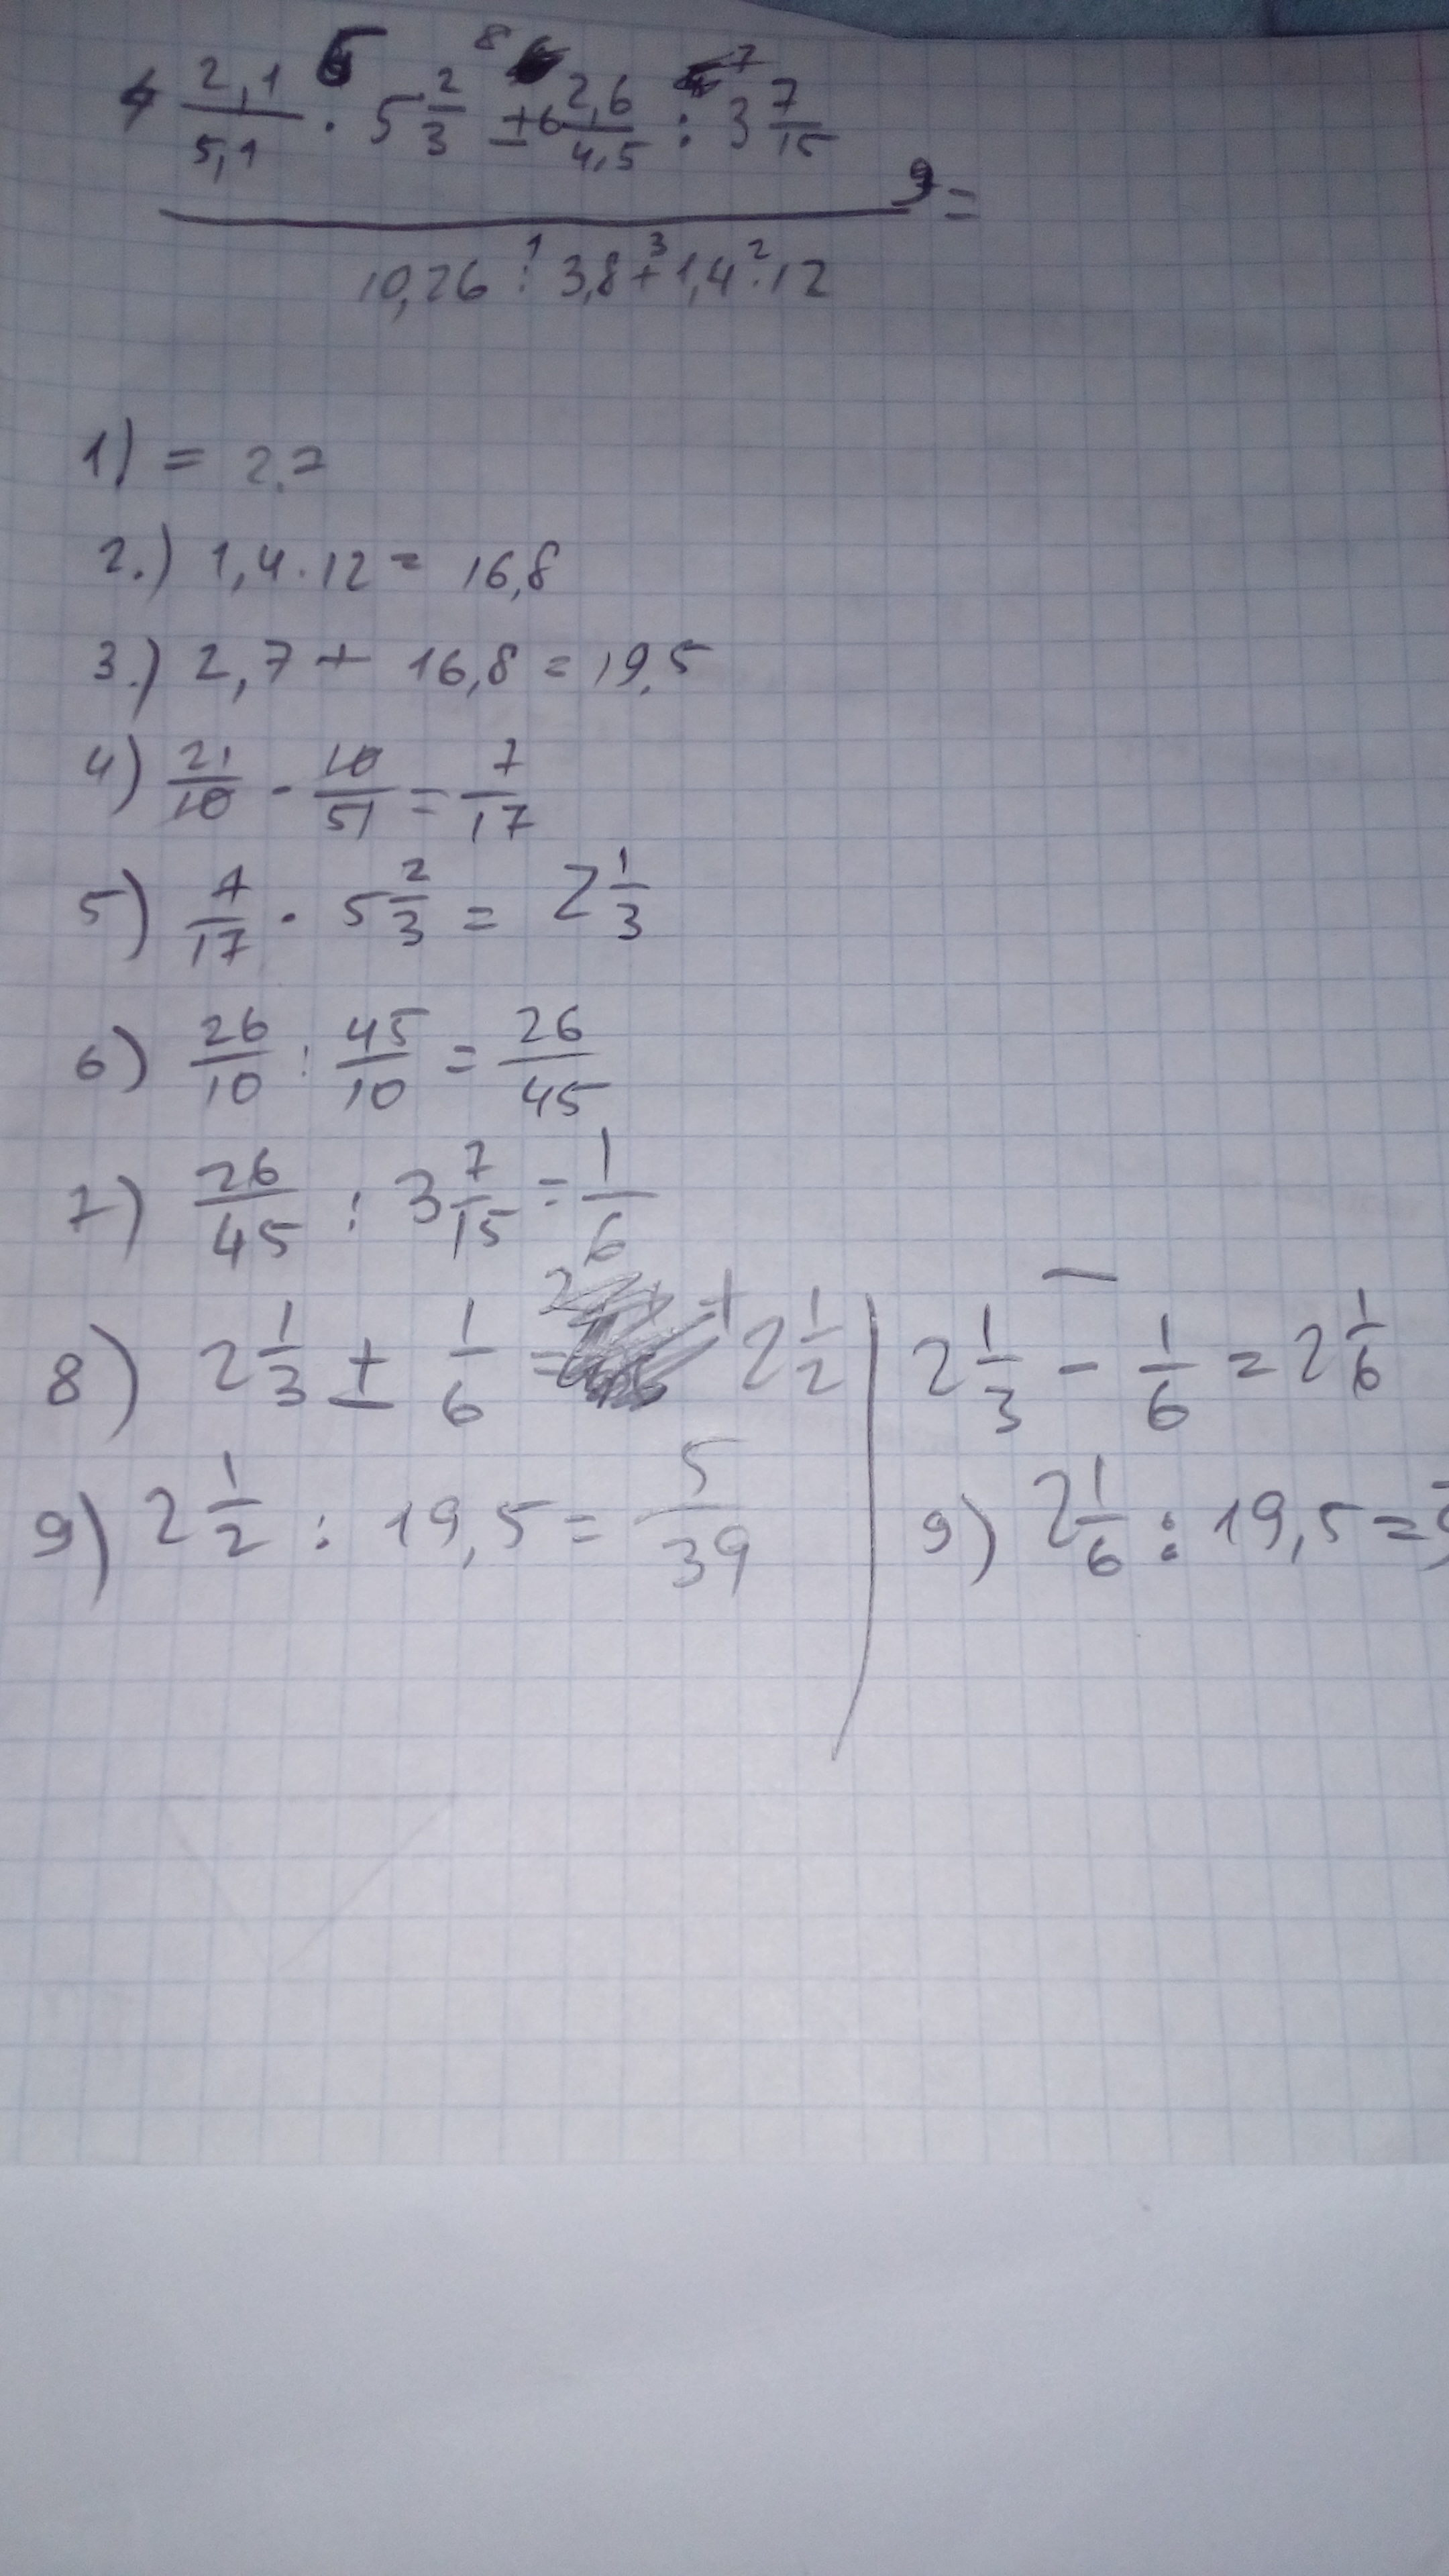 4 2,1/5,1 5 · 5 2/3 8 ± 6 2,6/4,5 : 7 3 7/15
9 =
10,26 :1 3,8 +3 1,4 ·2 12
1) = 2,7
2.) 1,4 · 12 = 16,8
3.) 2,7 + 16,8 = 19,5
4) 21/10 · 10/51 = 7/17
5) 7/17 · 5 2/3 = 2 1/3
6) 26/10 : 45/10 = 26/45
7) 26/45 : 3 7/15 = 1/6
8) 2 1/3 ± 1/6 = + 2 1/2 | − 2 1/3 − 1/6 = 2 1/6
9) 2 1/2 : 19,5 = 5/39 | 9) 2 1/6 : 19,5 =